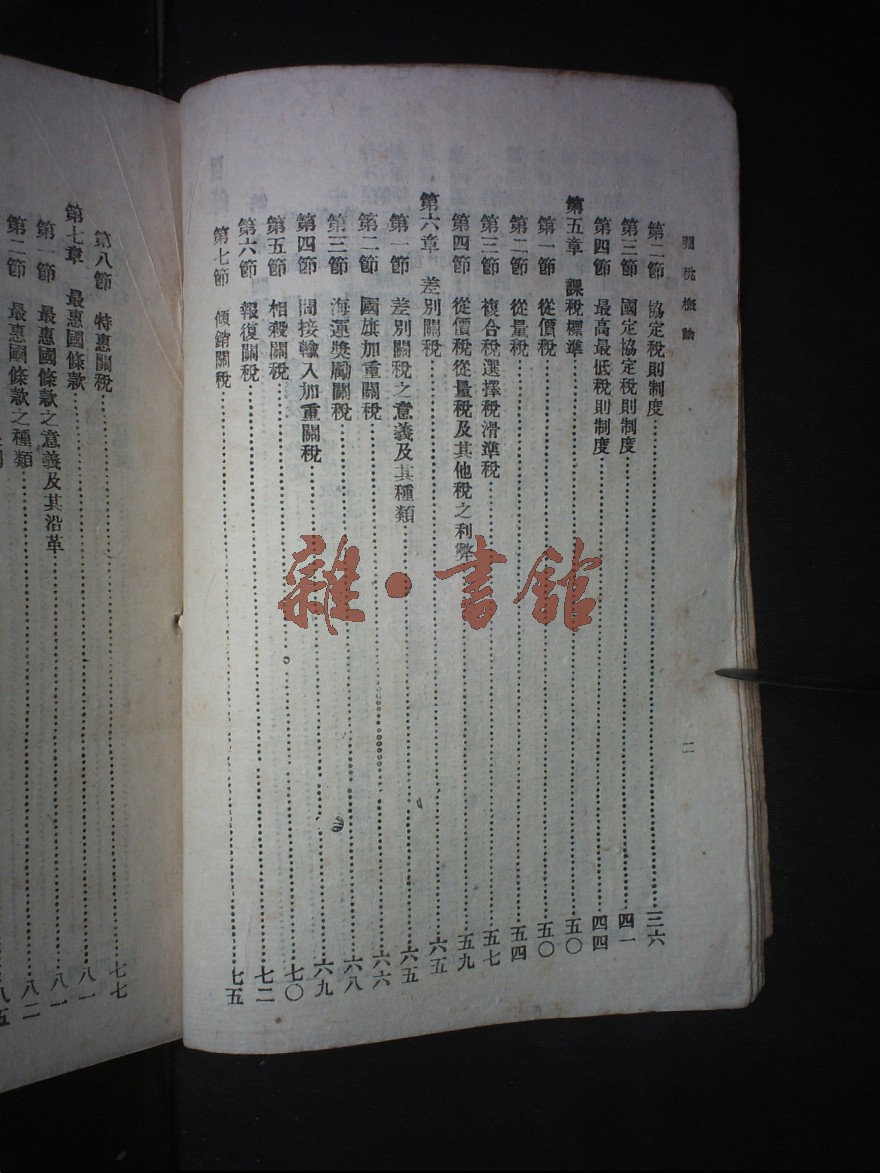 關稅概論
第二節 協定稅則制度 三六
第三節 國定協定稅則制度 四一
第四節 最高最低稅則制度 四四
第五章 課稅標準 五〇
第一節 從價稅 五〇
第二節 從量稅 五四
第三節 複合稅選擇稅滑準稅 五七
第四節 從價稅從量稅及其他稅之利弊 五九
第六章 差別關稅 六五
第一節 差別關稅之意義及其種類 六五
第二節 國旗加重關稅 六六
第三節 海運獎勵關稅 六八
第四節 間接輸入加重關稅 六九
第五節 相殺關稅 七〇
第六節 報復關稅 七二
第七節 傾銷關稅 七五
二
第八節 特惠關稅 七七
第七章 最惠國條款 八一
第一節 最惠國條款之意義及其沿革 八一
第二節 最惠國條款之種類 八二
八五
雜·書館